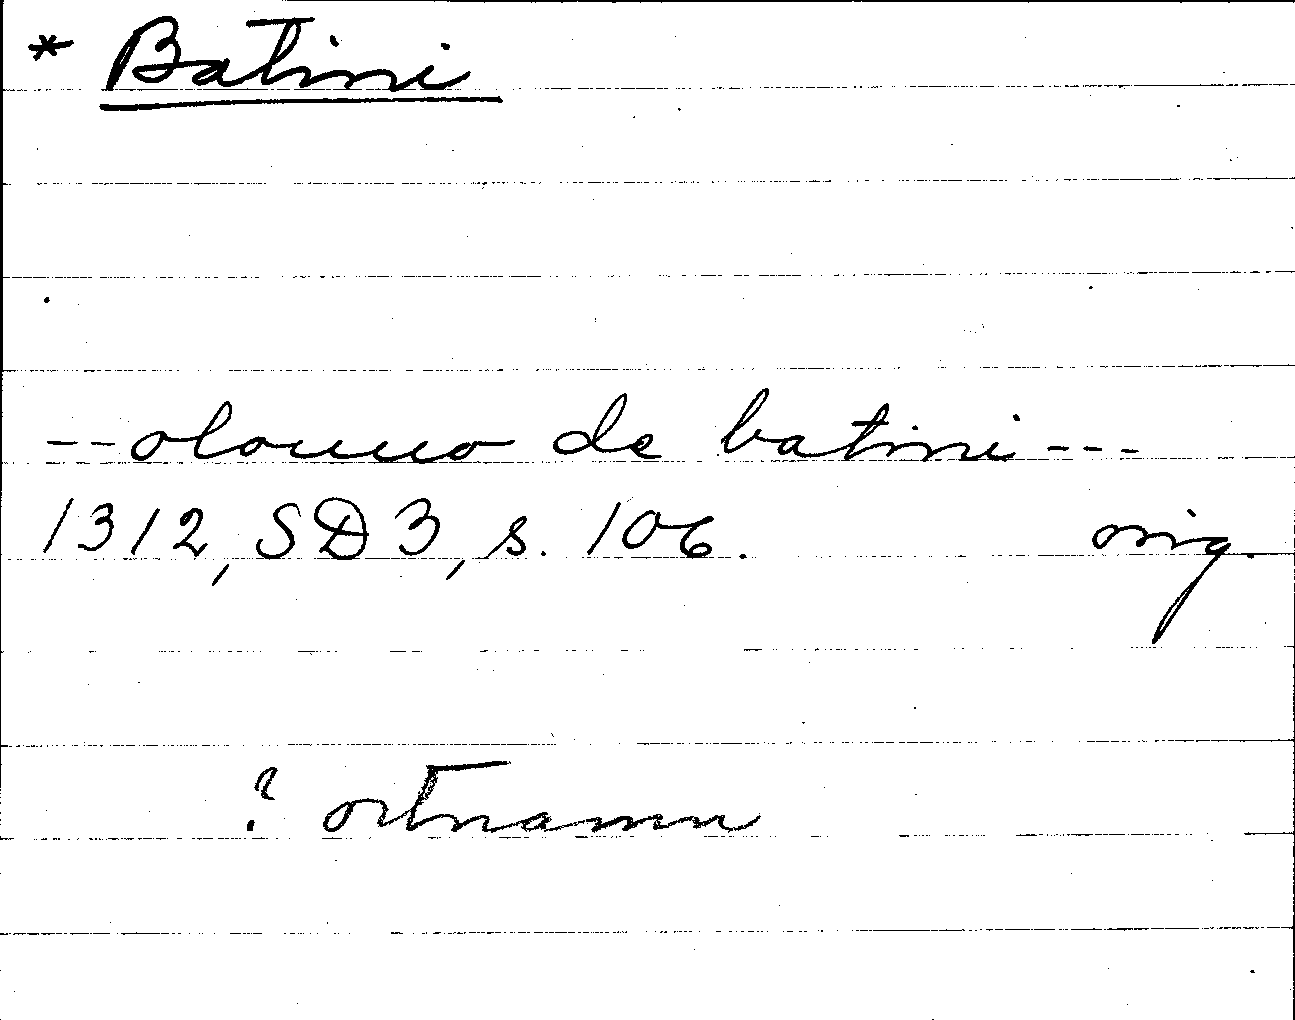 * Batini
-- olouuo de batini ---
1312, SD 3, s. 106. orig.
? ortnamn